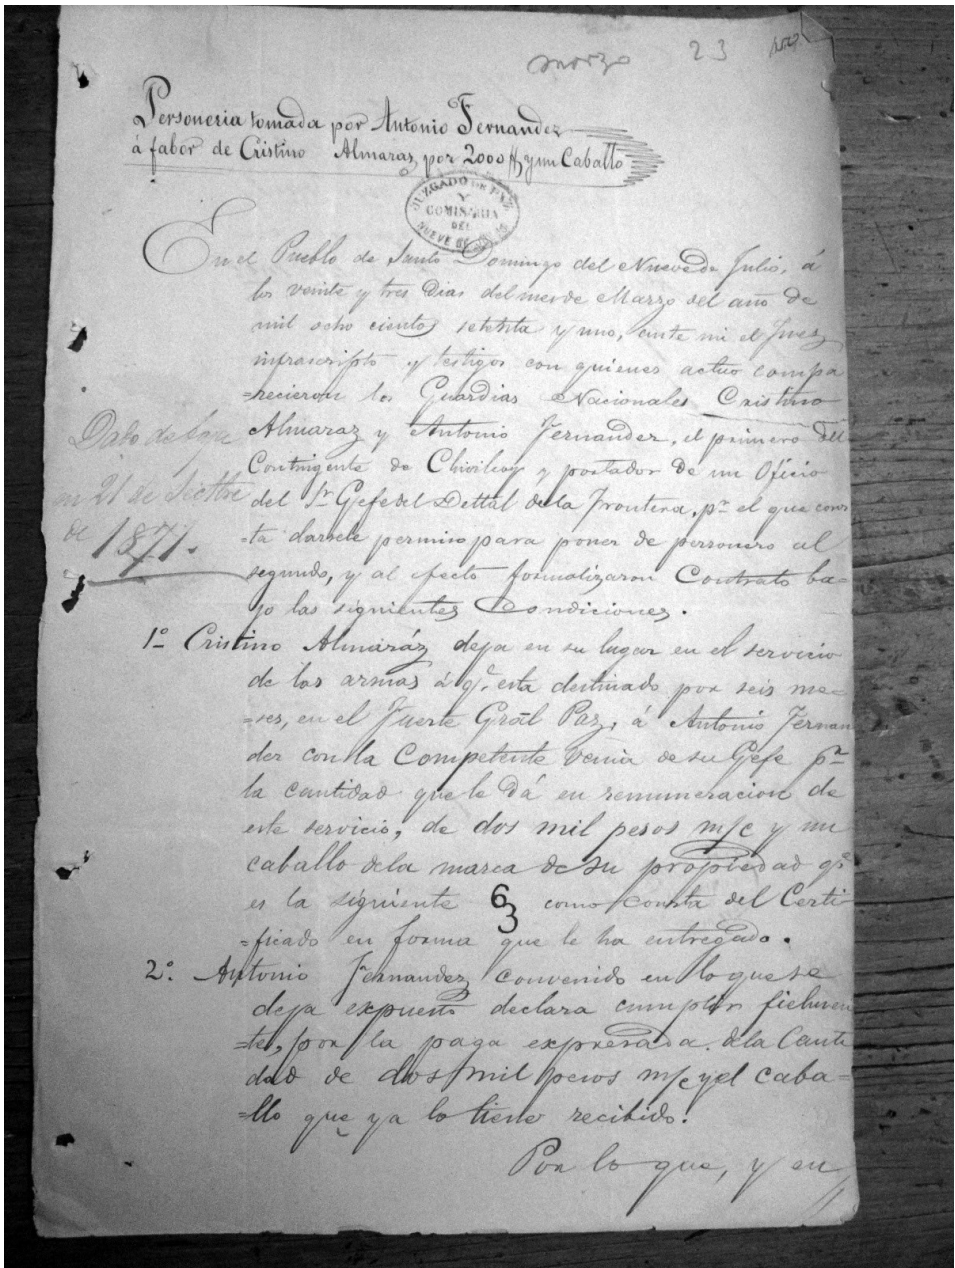 marzo 23
Personeria tomada por Antonio Fernandez
á fabor de Cristino Almaras, por 2000 $ y un Caballo
JUZGADO DE PAZ
Y
COMISARIA
DEL
NUEVE DE JULIO
En el Pueblo de Santo Domingo del Nueve de Julio, á
los veinte y tres dias del mes de Marzo del año de
mil ocho cientos setenta y uno, ante mi el Juez
infrascripto y testigos con quienes actuo compa
=recieron los Guardias Nacionales Cristino
Almaraz y Antonio Fernandez, el primero del
Contingente de Chivilcoy y portador de un Oficio
del Sr Gefe del Dettal de la Frontera, pa el que cons
=ta darsele permiso para poner de personero al
segundo, y al efecto formalizaron Contrato ba-
jo las siguientes Condiciones.
Dado de baja
en 21 de Settbre
de 1871.
1º Cristino Almaráz deja en su lugar en el servicio
de las armas á qe esta destinado por seis me-
=ses, en el Fuerte Gral Paz, á Antonio Fernan
dez con la Competente venia de su Gefe pa
la cantidad que le dá en remuneracion de
este servicio, de dos mil pesos m/c y un
caballo de la marca de su propiedad qe
es la siguiente como consta del Certi
=ficado en forma que le ha entregado.
2º. Antonio Fernandez convenido en lo que se
deja expuesto declara cumplir fielmen
=te, por la paga expresada de la Canti
dad de dos mil pesos m/c y el caba-
=llo que ya lo tiene recibido.
Por lo que, y en